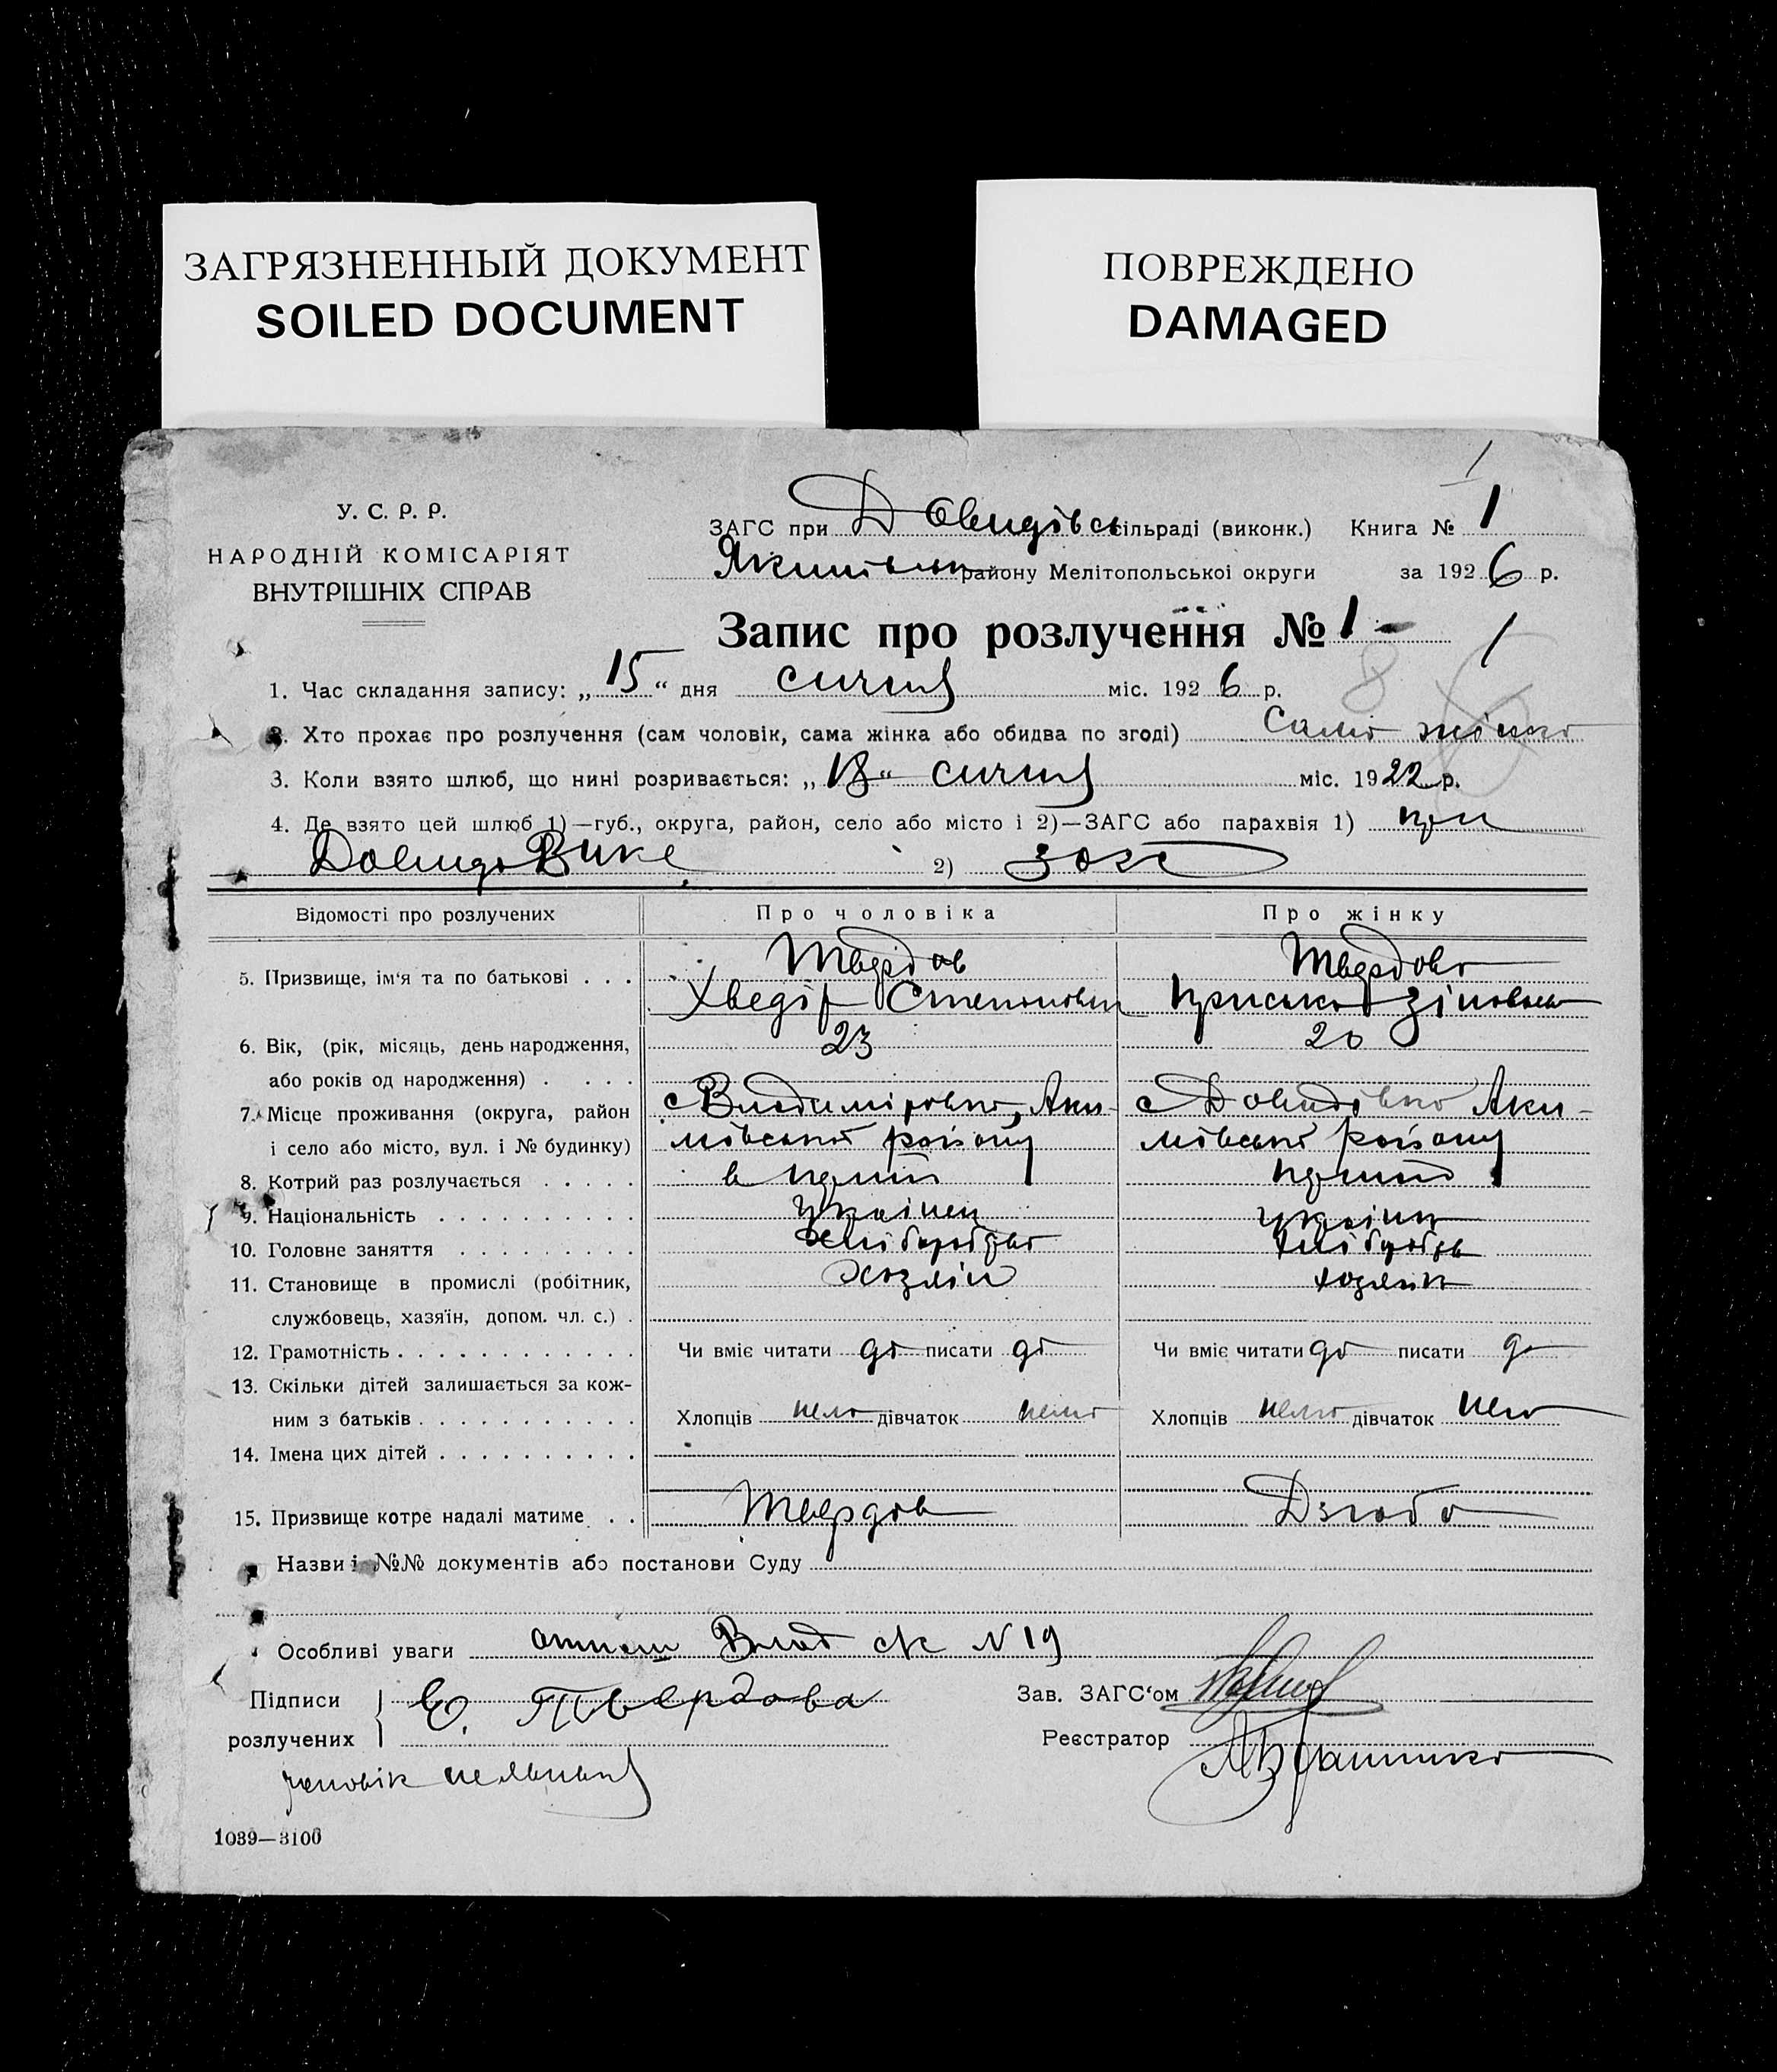 ЗАГРЯЗНЕННЫЙ ДОКУМЕНТ
SOILED DOCUMENT
ПОВРЕЖДЕНО
DAMAGED
1
У. С. Р. Р.
НАРОДНІЙ КОМІСАРІЯТ
ВНУТРІШНІХ СПРАВ
ЗАГС при Довидівс сільраді (виконк.) Книга № 1
району Мелітопольської округи за 1926 р.
Запис про розлучення № 1 -
1
8
1. Час складання запису: „15“ дня сичня міс. 1926 р.
2. Хто прохає про розлучення (сам чоловік, сама жінка або обидва по згоді) Сама жінка
3. Коли взято шлюб, що нині розривається: „18“ сичня міс. 1922 р.
4. Де взято цей шлюб 1)—губ., округа, район, село або місто і 2)—ЗАГС або парахвія 1) при
2) загс
Відомості про розлучених
Про чоловіка
Про жінку
5. Призвище, ім'я та по батькові . . .
Твердов
Хведір Степанович
Твердова
Пріська Зіновьев
6. Вік, (рік, місяць, день народження,
або років од народження) . . . .
23
20
7. Місце проживання (округа, район
і село або місто, вул. і № будинку)
с Владиміровка, Аки-
мівській району
с Довидівка Аки-
мівській району
8. Котрий раз розлучається . . . . .
в перший
перший
9. Національність . . . . . . . . . .
Українец
Українка
10. Головне заняття . . . . . . . . .
хліборобство
хлібороб
11. Становище в промислі (робітник,
службовець, хазяїн, допом. чл. с.) .
Хозяїн
хозяйка
12. Грамотність . . . . . . . . . . . .
Чи вміє читати да писати да
Чи вміє читати да писати да
13. Скільки дітей залишається за кож-
ним з батьків . . . . . . . . . . .
Хлопців нема дівчаток нема
Хлопців нема дівчаток нема
14. Імена цих дітей . . . . . . . . . .
15. Призвище котре надалі матиме . .
Твердов
Дзюба
Назви і №№ документів або постанови Суду
Особливі уваги Влад с/к N 19
Підписи
розлучених
Е. Твердова
Зав. ЗАГС'ом
Реєстратор
чоловік неявився
1039—3100